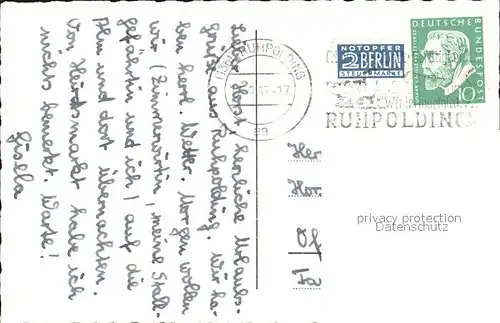 Lieber Horst, herzliche Urlaubs-
grüße aus Ruhpolding. Wir ha-
ben herrl. Wetter. Morgen wollen
wir (Zimmerwirtin, meine Stall-
gefährtin und ich) auf die
Alm und dort übernachten.
Von Heiratsmarkt habe ich
nichts bemerkt. Warte!
Gisela
RUHPOLDING
NOTOPFER
2 BERLIN
STEUERMARKE
DEUTSCHE
BUNDESPOST
10
RUHPOLDING
Her
Hor
Of
privacy protection
Datenschutz